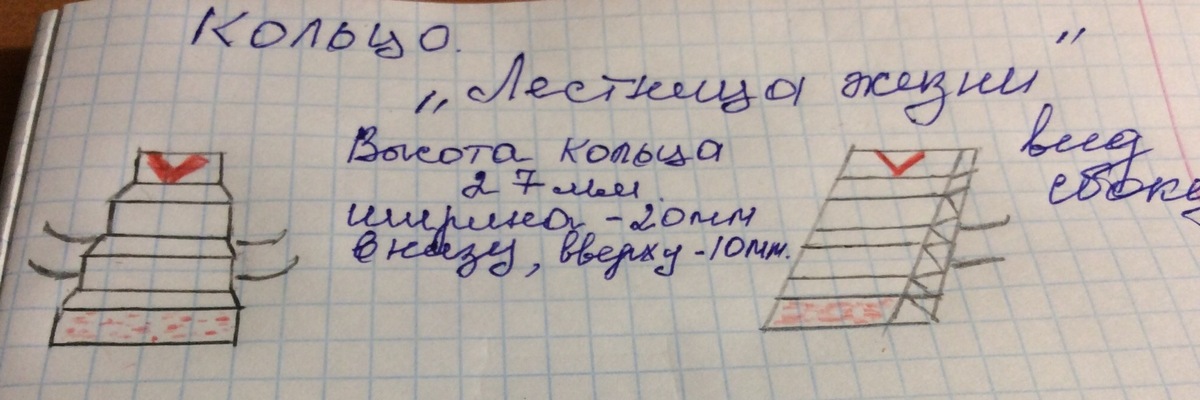 Кольцо.
„Лестница жизни"
Высота кольца
27 мм.
ширина - 20 мм
внизу, вверху - 10 мм.
вид
сбоку